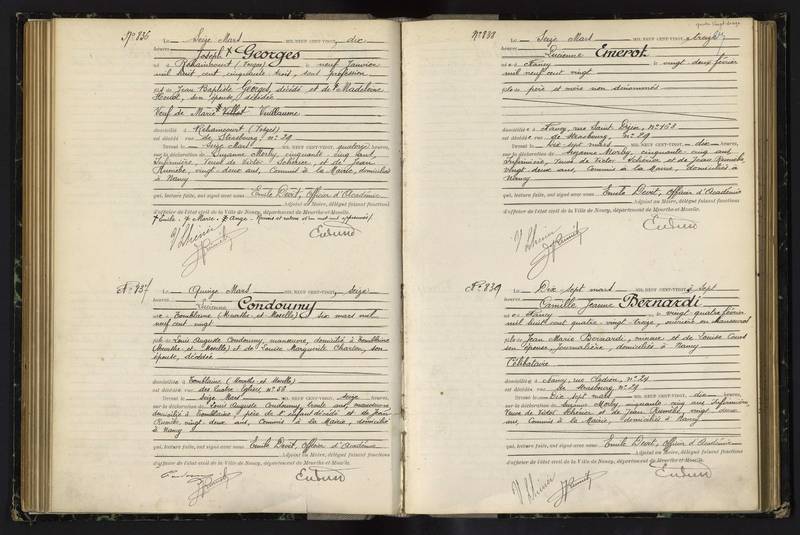 Nº 836
Le Seize Mars MIL NEUF CENT-VINGT, dix
heures
Joseph Georges
né à Rehaincourt (Vosges) le neuf Janvier
mil huit cent cinquante trois, sans profession
fils de Jean Baptiste Georges, décédé et de Madeleine
son épouse, décédée
Veuf de Marie Vuillaume
domicilié à Rehaincourt (Vosges)
est décédé rue de Strasbourg, nº 29
Dressé le Seize Mars MIL NEUF CENT-VINGT, quatorze heures,
sur la déclaration de Suzanne Morby, cinquante cinq ans,
Infirmière, Veuve de Victor Schérier, et de Jean
vingt deux ans, Commis à la Mairie, domiciliés
à Nancy
qui, lecture faite, ont signé avec nous Emile Devit, Officier d'Académie
Adjoint au Maire, délégué faisant fonctions
d'officier de l'état civil de la Ville de Nancy, département de Meurthe-et-Moselle.
Nº 837
Le Quinze Mars MIL NEUF CENT-VINGT, seize
heures
Lucienne Condoumy
née à Tomblaine (Meurthe et Moselle) six mars mil
neuf cent vingt
fille de Louis Auguste Condoumy, manœuvre, domicilié à Tomblaine
(Meurthe et Moselle) et de Louise Marguerite Charton, son
épouse, décédée
domiciliée à Tomblaine (Meurthe et Moselle)
est décédée rue des Quatre Eglises, nº 58
Dressé le Seize Mars MIL NEUF CENT-VINGT, seize heures,
sur la déclaration de Louis Auguste Condoumy, trente ans, manœuvre
domicilié à Tomblaine, père de l'enfant décédé et de Jean
vingt deux ans, Commis à la Mairie, domicilié
à Nancy
qui, lecture faite, ont signé avec nous Emile Devit, Officier d'Académie
Adjoint au Maire, délégué faisant fonctions
d'officier de l'état civil de la Ville de Nancy, département de Meurthe-et-Moselle.
Nº 838
Le Seize Mars MIL NEUF CENT-VINGT, treize
heures
Lucienne Emerot
née à Nancy le vingt deux février
mil neuf cent vingt
fille de père et mère non dénommés
domiciliée à Nancy, rue Saint Dizier, nº 158
est décédée rue de Strasbourg, nº 29
Dressé le Dix sept mars MIL NEUF CENT-VINGT, dix heures,
sur la déclaration de Suzanne Morby, cinquante cinq ans
Infirmière, Veuve de Victor Schérier et de Jean
vingt deux ans, Commis à la Mairie, domiciliés à
Nancy
qui, lecture faite, ont signé avec nous Emile Devit, Officier d'Académie
Adjoint au Maire, délégué faisant fonctions
d'officier de l'état civil de la Ville de Nancy, département de Meurthe-et-Moselle.
Nº 839
Le Dix sept mars MIL NEUF CENT-VINGT, sept
heures
Camille Jeanne Bernardi
née à Nancy le vingt quatre février
mil huit cent quatre-vingt treize, ouvrière en
fille de Jean Marie Bernardi, mineur et de Louise
son épouse, journalière, domiciliés à Nancy
Célibataire
domiciliée à Nancy, rue Clodion, nº 29
est décédée rue de Strasbourg nº 29
Dressé le Dix sept mars MIL NEUF CENT-VINGT, dix heures,
sur la déclaration de Suzanne Morby, cinquante cinq ans, Infirmière,
Veuve de Victor Schérier et de Jean vingt deux
ans, Commis à la Mairie, domiciliés à Nancy
qui, lecture faite, ont signé avec nous Emile Devit, Officier d'Académie
Adjoint au Maire, délégué faisant fonctions
d'officier de l'état civil de la Ville de Nancy, département de Meurthe-et-Moselle.